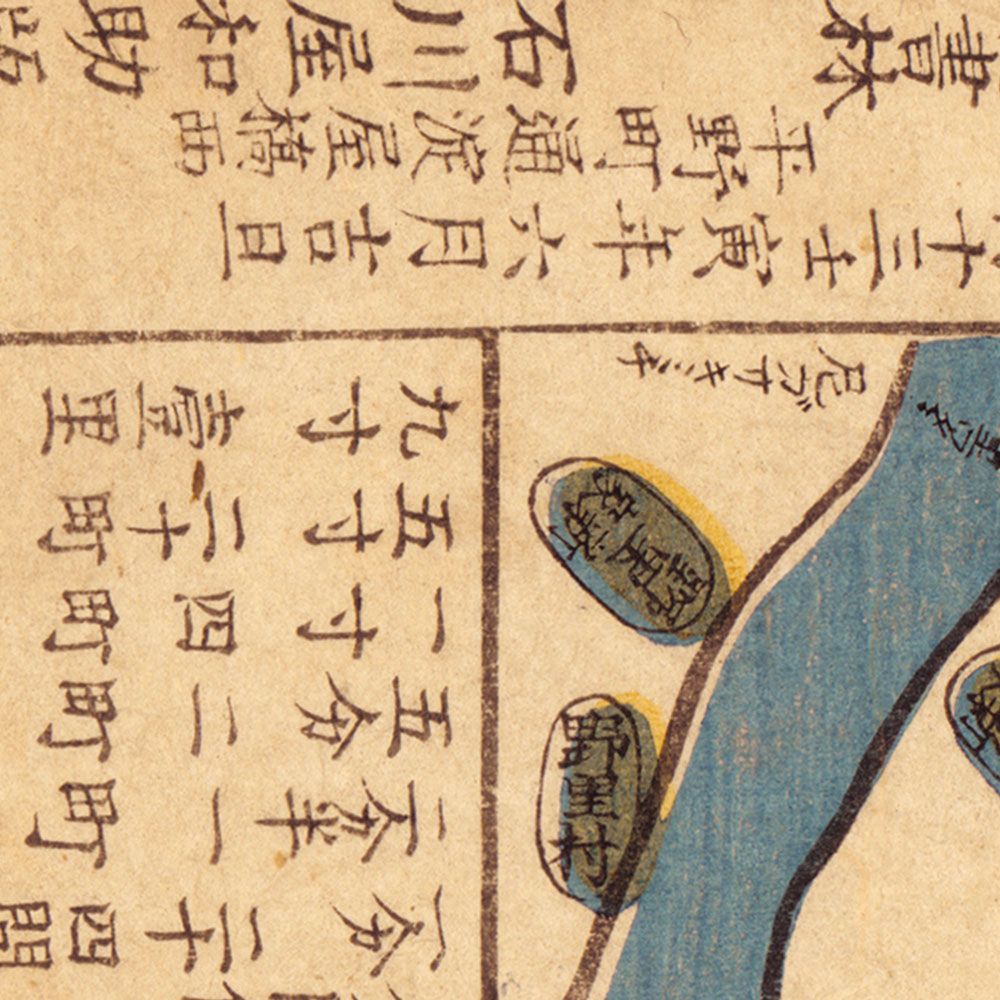 十三壬寅年六月吉旦
平野町通淀屋橋西
書林 石川屋和助
一分 二十四間
二分半 一町
五分 二町
一寸 四町
五寸 二十町
九寸 壹里
尼ガサキミチ
野里村